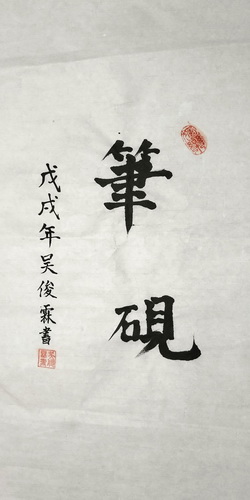 筆硯
戊戌年吴俊霖書